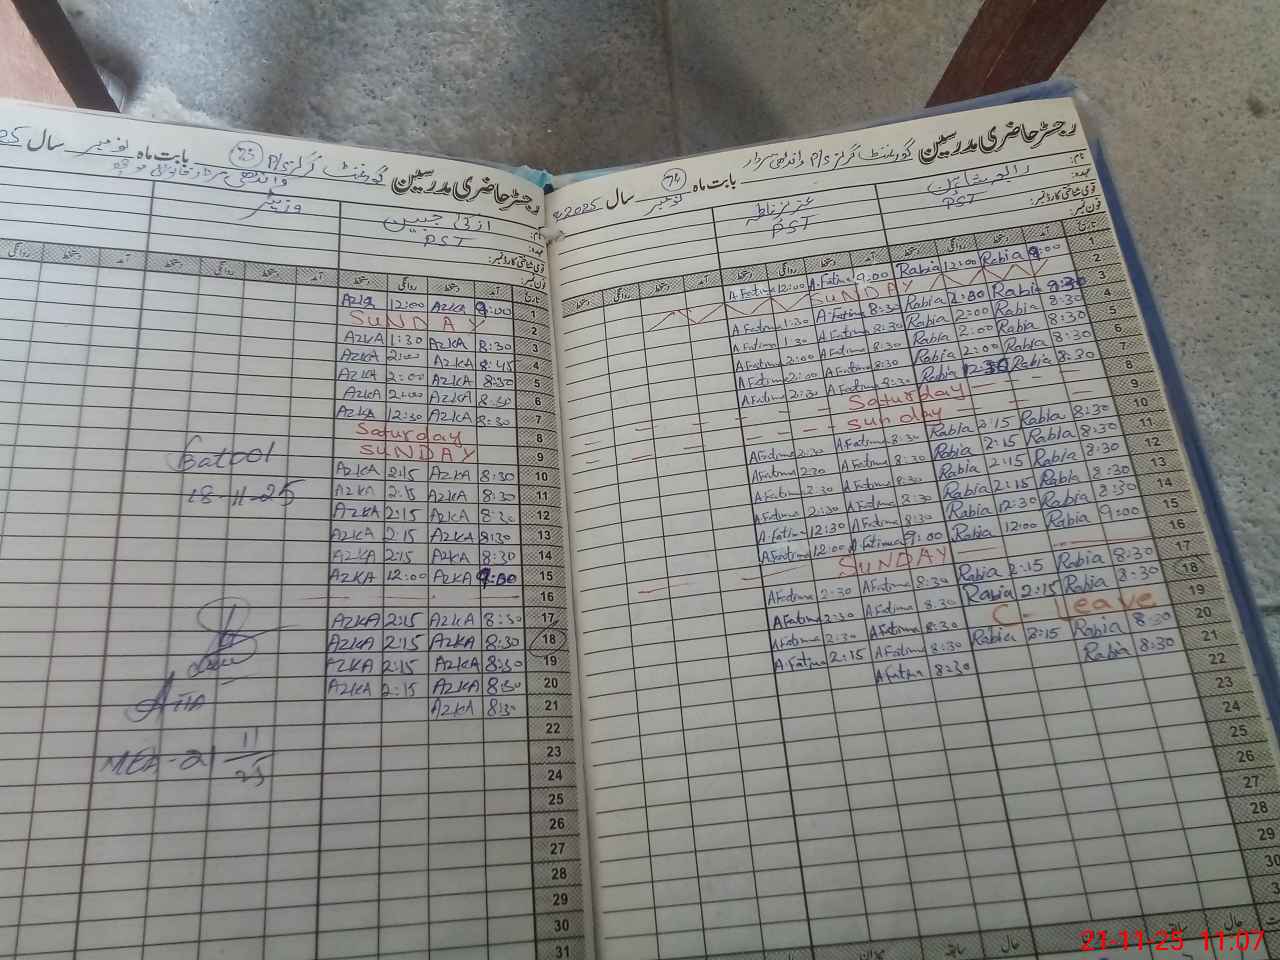 رجسٹر حاضری مدرسین
گورنمنٹ گرلز P/S وانڈھی سردار
بابت ماہ نومبر 74 سال 2025
نام:
عہدہ: PST PST
قومی شناختی کارڈ نمبر:
فون نمبر:
تاریخ آمد دستخط روانگی دستخط آمد دستخط روانگی دستخط
1 9:00 Rabia 12:00 Rabia 9:00 A.Fatima 12:00 A.Fatima
2 SUNDAY
3 8:30 Rabia Rabia 8:30 A.Fatima 1:30 A.Fatima
4 8:30 Rabia 2:00 Rabia 8:30 A.Fatima 1:30 A.Fatima
5 8:30 Rabia 2:00 Rabia 8:30 A.Fatima 2:00 A.Fatima
6 8:30 Rabia 2:00 Rabia 8:30 A.Fatima 2:00 A.Fatima
7 8:30 Rabia Rabia 8:30 A.Fatima A.Fatima
8 Saturday
9 Sunday
10 8:30 Rabia 2:15 Rabia 8:30 A.Fatima 2:30 A.Fatima
11 8:30 Rabia 2:15 Rabia 8:30 A.Fatima 2:30 A.Fatima
12 8:30 Rabia 2:15 Rabia 8:30 A.Fatima 2:30 A.Fatima
13 8:30 Rabia 2:15 Rabia 8:30 A.Fatima 2:30 A.Fatima
14 8:30 Rabia 12:30 Rabia 8:30 A.Fatima 12:30 A.Fatima
15 9:00 Rabia 12:00 Rabia 9:00 A.Fatima 12:00 A.Fatima
16 SUNDAY
17 8:30 Rabia 2:15 Rabia 8:30 A.Fatima 2:30 A.Fatima
18 8:30 Rabia 2:15 Rabia 8:30 A.Fatima 2:30 A.Fatima
19 C-leave 8:30 A.Fatima 2:30 A.Fatima
20 8:30 Rabia 2:15 Rabia 8:30 A.Fatima 2:15 A.Fatima
21 8:30 Rabia 8:30 A.Fatima
22
23
24
25
26
27
28
29
رجسٹر حاضری مدرسین
گورنمنٹ گرلز P/S
بابت ماہ نومبر 75 سال
نام:
عہدہ: PST
قومی شناختی کارڈ نمبر:
فون نمبر:
تاریخ آمد دستخط روانگی دستخط آمد دستخط روانگی دستخط آمد دستخط روانگی
1 9:00 AZKA 12:00 AZKA
2 SUNDAY
3 8:30 AZKA 1:30 AZKA
4 8:45 AZKA 2:00 AZKA
5 8:30 AZKA 2:00 AZKA
6 8:30 AZKA 2:00 AZKA
7 8:30 AZKA 12:30 AZKA
8 Saturday
9 SUNDAY
10 8:30 AZKA 2:15 AZKA
11 8:30 AZKA 2:15 AZKA
12 8:30 AZKA 2:15 AZKA
13 8:30 AZKA 2:15 AZKA
14 8:30 AZKA 2:15 AZKA
15 9:00 AZKA 12:00 AZKA
16
17 8:30 AZKA 2:15 AZKA
18 8:30 AZKA 2:15 AZKA
19 8:30 AZKA 2:15 AZKA
20 8:30 AZKA 2:15 AZKA
21 8:30 AZKA
22
23
24
25
26
27
28
29
30
31
Batool
18-11-25
21-11-25 11:07